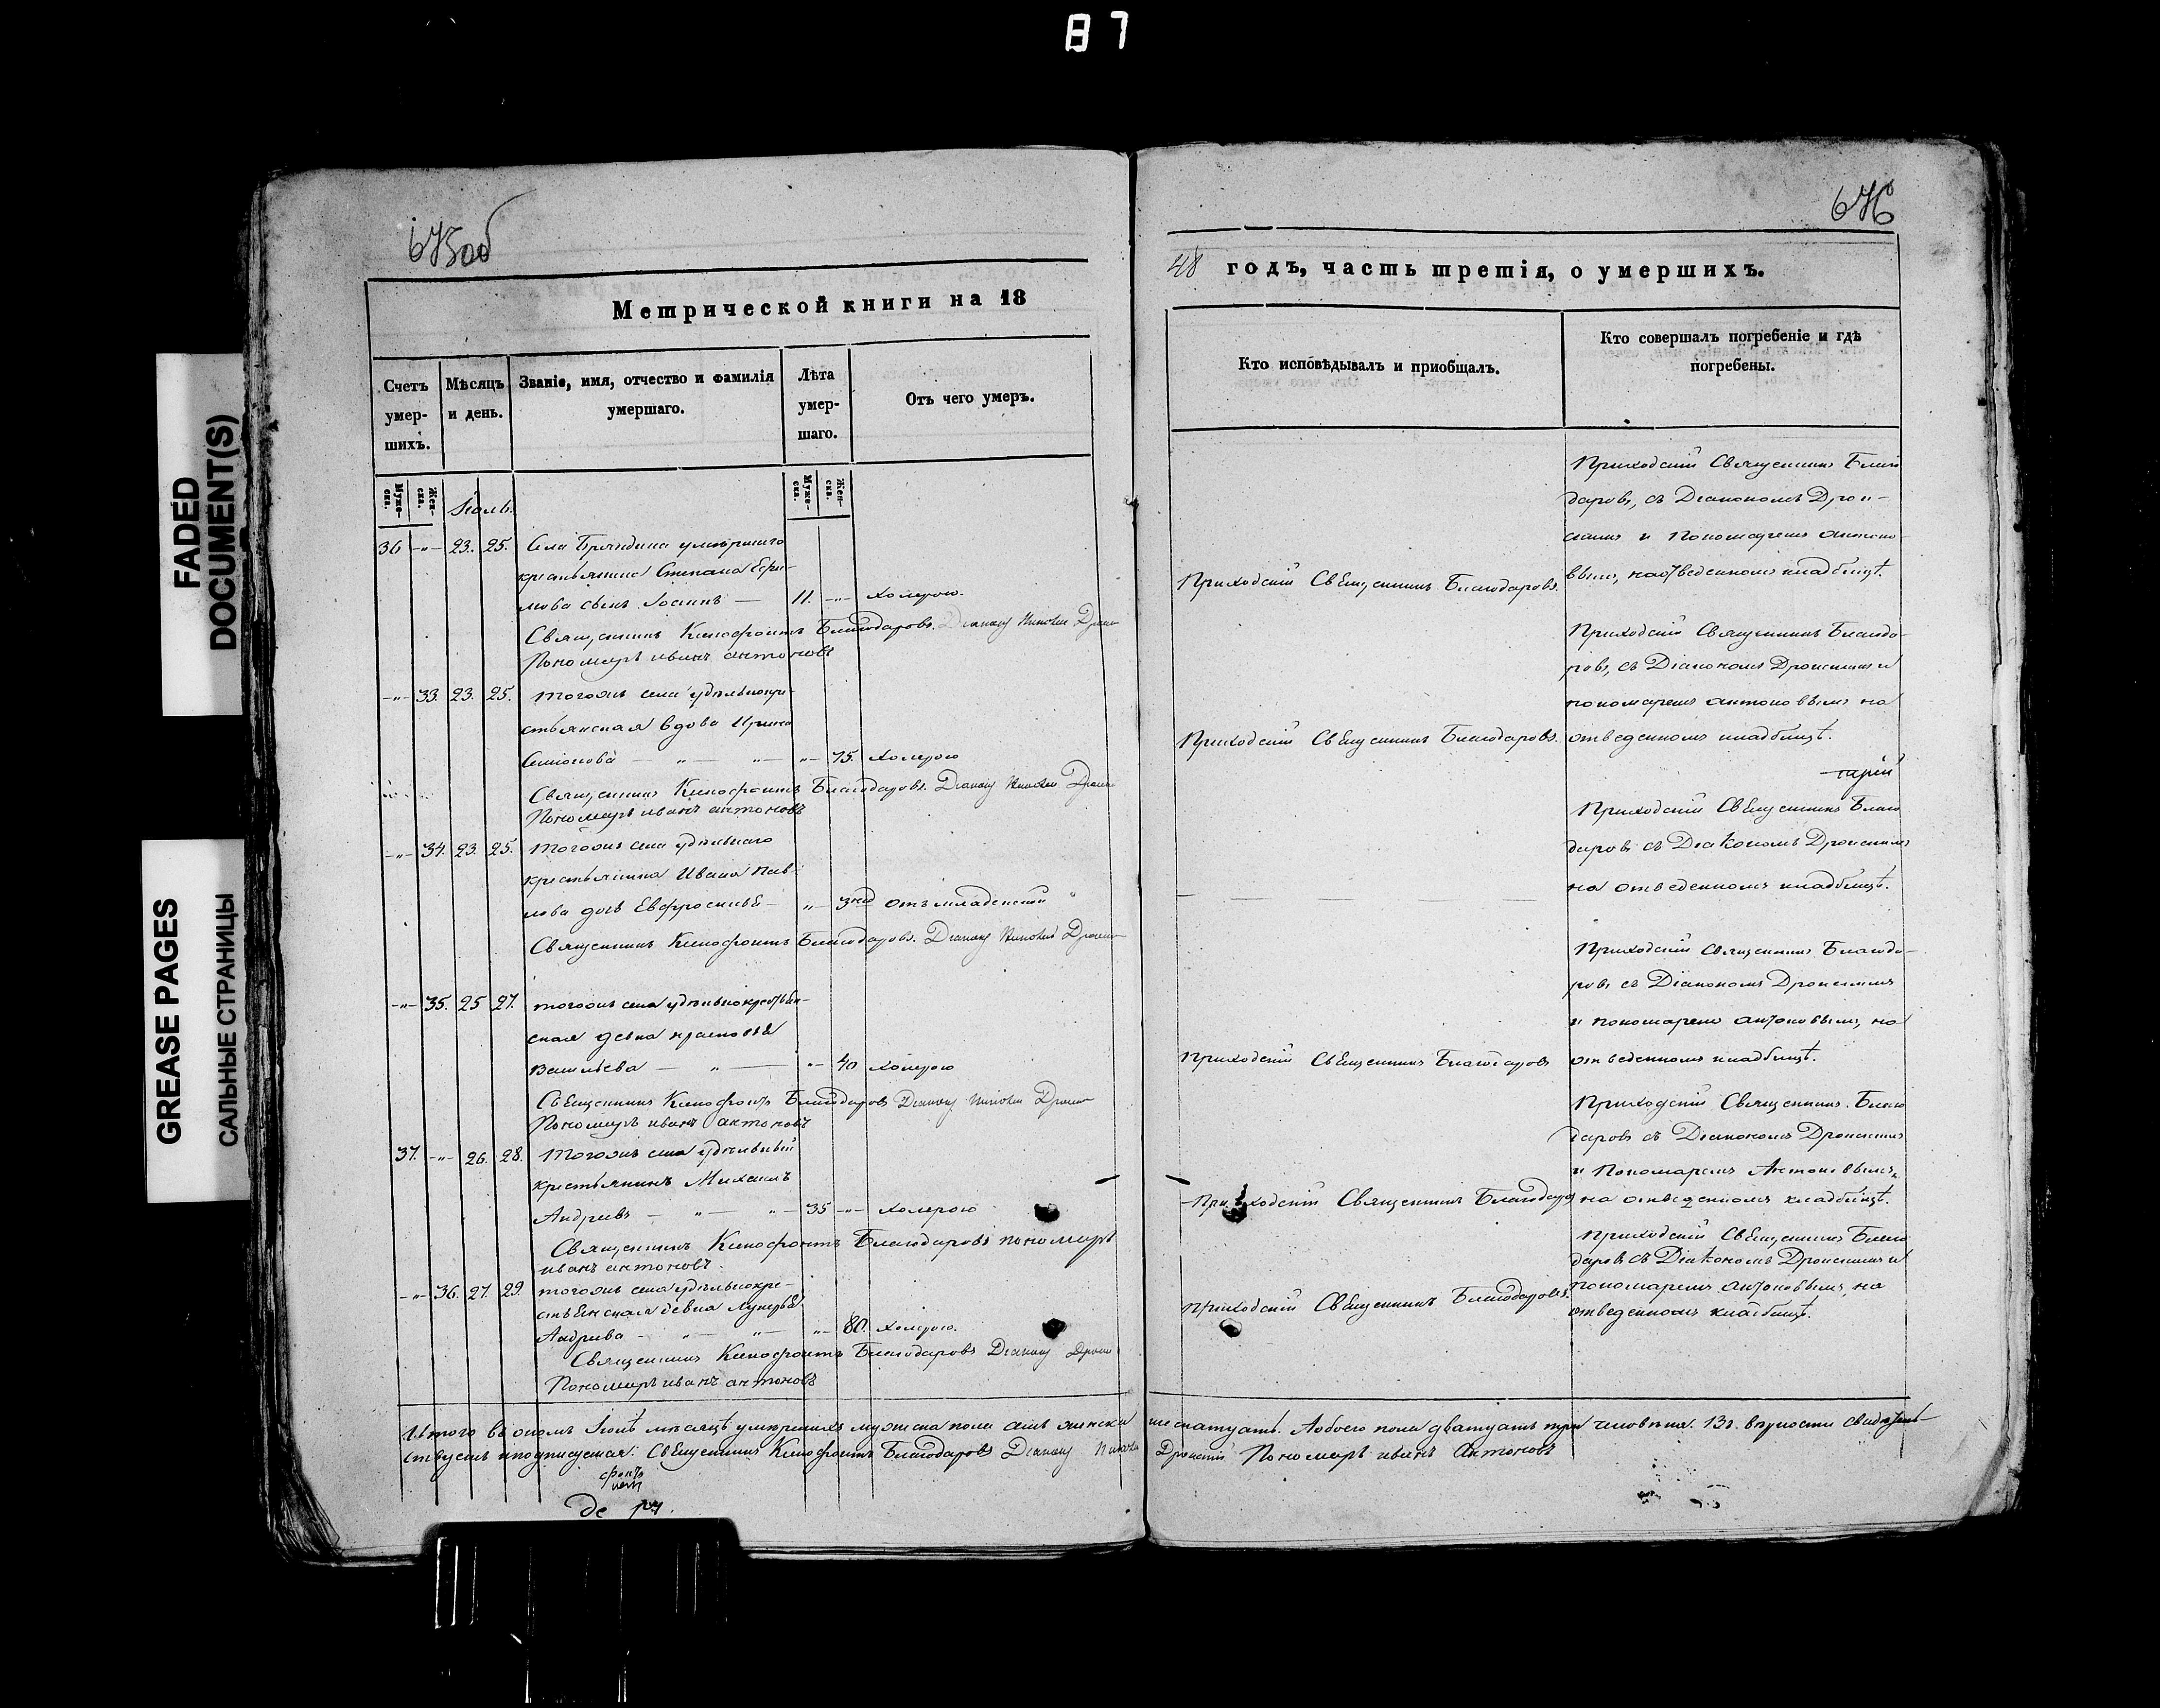 87
FADED
DOCUMENT(S)
GREASE PAGES
САЛЬНЫЕ СТРАНИЦЫ
675об
Метрической книги на 18
Счетъ умер-шихъ.
Мѣсяцъ и день.
Званіе, имя, отчество и фамилія умершаго.
Лѣта умер-шаго.
Отъ чего умеръ.
Муже-ска.
Жен-ска.
Муже-ска.
Жен-ска.
Іюль.
36 -"- 23. 25. Села умершаго
крестьянина Степана Ефи-
мова сынъ Іоаннъ — 11. -"- холерою.
Священникъ Ксенофонтъ Благодаровъ. Діаконъ
Пономарь иванъ антоновъ
-"- 33. 23. 25. тогожъ села удѣльнокре-
стьянская вдова Ирина
Семіонова — " — " — "- 75. холерою
Священникъ Ксенофонтъ Благодаровъ. Діаконъ
Пономарь иванъ антоновъ
-"- 34. 23. 25. Тогожъ села удѣльнаго
крестьянина Ивана Пав-
лова дочь Евфросинья — "- 3 нед отъ младенской
Священникъ Ксенофонтъ Благодаровъ. Діаконъ
-"- 35. 25 27. тогожъ села удѣльнокрестьян-
ская девка
Васильева — " — "- 40 холерою
Священникъ Ксенофонтъ Благодаровъ Діаконъ
Пономарь иванъ антоновъ
37. -"- 26. 28. Тогожъ села удѣльный
крестьянинъ Михаилъ
Андреевъ — " — " — 35 -"- холерою
Священникъ Ксенофонтъ Благодаровъ пономарь
иванъ антоновъ.
-"- 36. 27. 29. тогожъ села удѣльнокре-
стьянская девка
Андреева — " — " — "- 80. холерою.
Священникъ Ксенофонтъ Благодаровъ Діаконъ
Пономарь иванъ антоновъ
676
48 годъ, часть третія, о умершихъ.
Кто исповѣдывалъ и приобщалъ.
Кто совершалъ погребеніе и гдѣ погребены.
Приходскій Священникъ Благо
даровъ, съ Діакономъ Дрон-
и Пономаремъ антоно-
Приходскій Священникъ Благодаровъ. вымъ, на отведенномъ кладбищѣ.
Приходскій Священникъ Благода-
ровъ, съ Діакономъ и
пономаремъ антоновымъ на
Приходскій Священникъ Благодаровъ. отведенномъ кладбищѣ.
Приходскій Священникъ Благо
даровъ съ Діакономъ
на отведенномъ кладбищѣ.
Приходскій Священникъ Благода-
ровъ съ Діакономъ
и пономаремъ антоновымъ, на
Приходскій Священникъ Благодаровъ отведенномъ кладбищѣ.
Приходскій Священникъ Благо
даровъ съ Діакономъ
и Пономаремъ Антоновымъ,
Приходскій Священникъ Благодаровъ на отведенномъ кладбищѣ.
Приходскій Священникъ Благо
даровъ съ Діакономъ и
пономаремъ антоновымъ, на
Приходскій Священникъ Благодаровъ. отведенномъ кладбищѣ.
Итого въ ономъ Іюлѣ мѣсяцѣ умершихъ мужеска пола женска шеснатцать. Обоего пола дватцать три человѣка. въ вѣрности свидетель-
ствуемъ и подписуемся: Священникъ Ксенофонтъ Благодаровъ Діаконъ Пономарь иванъ Антоновъ